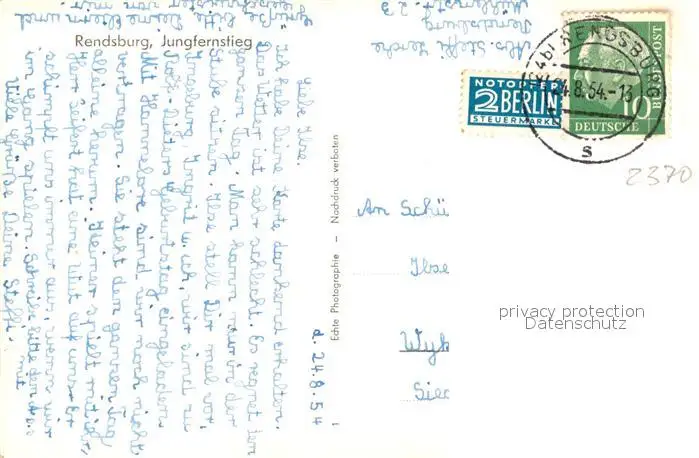 Rendsburg, Jungfernstieg
d. 24.8.54
Liebe Ilse.
Ich habe Deine Karte dankend erhalten.
Das Wetter ist sehr schlecht. Es regnet den
ganzen Tag. Man kann nur in der
Stube sitzen. Ilse stell Dir mal vor,
Ingrid u. ich, wir sind zu
Geburtstag eingeladen.
Mit Hannelore sind wir noch nicht
vertragen. Sie steht den ganzen Tag
alleine herum. Heiner spielt mit ihr.
Herr Seifert hat eine Wut auf uns. Er
schimpft uns immer aus, wenn wir
im gang spielen. Schreibe bitte den
Viele Grüße Deine Steffi.
Grüße bitte Deine Eltern und
von mir.
Abs. Steffi
Rendsburg
23
Echte Photographie – Nachdruck verboten
NOTOPFER
2 BERLIN
STEUERMARKE
RENDSBURG
24.8.54.-13
s
10
DEUTSCHE
BUNDESPOST
2370
An Schü
Ilse
Wyk
privacy protection
Datenschutz